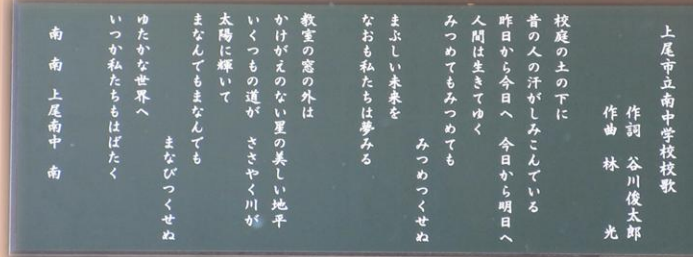 上尾市立南中学校校歌
作詞 谷川俊太郎
作曲 林 光
校庭の土の下に
昔の人の汗がしみこんでいる
昨日から今日へ 今日から明日へ
人間は生きてゆく
みつめてもみつめても
みつめつくせぬ
まぶしい未来を
なおも私たちは夢みる
教室の窓の外は
かけがえのない星の美しい地平
いくつもの道が ささやく川が
太陽に輝いて
まなんでもまなんでも
まなびつくせぬ
ゆたかな世界へ
いつか私たちもはばたく
南 南 上尾南中 南